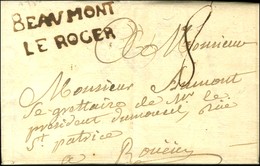 BEAUMONT
LE ROGER
A Monsieur
8
Monsieur Dumont
Secrettaire de Mr le
président dumousel rüe
St patrice
a Roüen